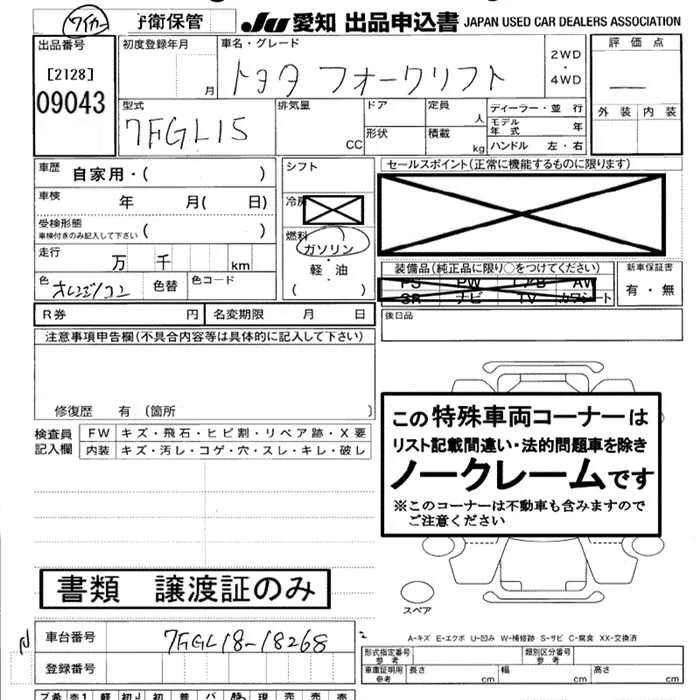 ワイカー
予衛保管
JU 愛知 出品申込書 JAPAN USED CAR DEALERS ASSOCIATION
出品番号
[2128]
09043
初度登録年月
月
車名・グレード
トヨタ フォークリフト
2WD
・
4WD
評価点
外装 内装
型式
7FGL15
排気量
CC
ドア
形状
定員
人
積載
kg
ディーラー・並 行
モデル年式
年
ハンドル 左・右
車歴
自家用・( )
車検
年 月( 日)
受検形態
車検付きのみ記入して下さい ( )
走行
万 千 km
色
色替
色コード
R券
円
名変期限
月 日
シフト
冷房
燃料
ガソリン
・
軽・油
( )
セールスポイント(正常に機能するものに限ります)
装備品(純正品に限り○をつけてください)
PS PW エアB AW
SR ナビ TV カワシート
新車保証書
有・無
後日品
注意事項申告欄(不具合内容等は具体的に記入して下さい)
修復歴 有 〔箇所 〕
検査員
記入欄
FW キズ・飛石・ヒビ割・リペア跡・X要
内装 キズ・汚レ・コゲ・穴・スレ・キレ・破レ
この特殊車両コーナーは
リスト記載間違い・法的問題車を除き
ノークレームです
※このコーナーは不動車も含みますので
ご注意ください
スペア
書類 譲渡証のみ
A-キズ E-エクボ U-凹み W-補修跡 S-サビ C-腐食 XX-交換済
車台番号
7FGL18-18268
登録番号
形式指定番号
参考
類別区分番号
参考
車庫証明用
参考
長さ
cm
幅
cm
高さ
cm